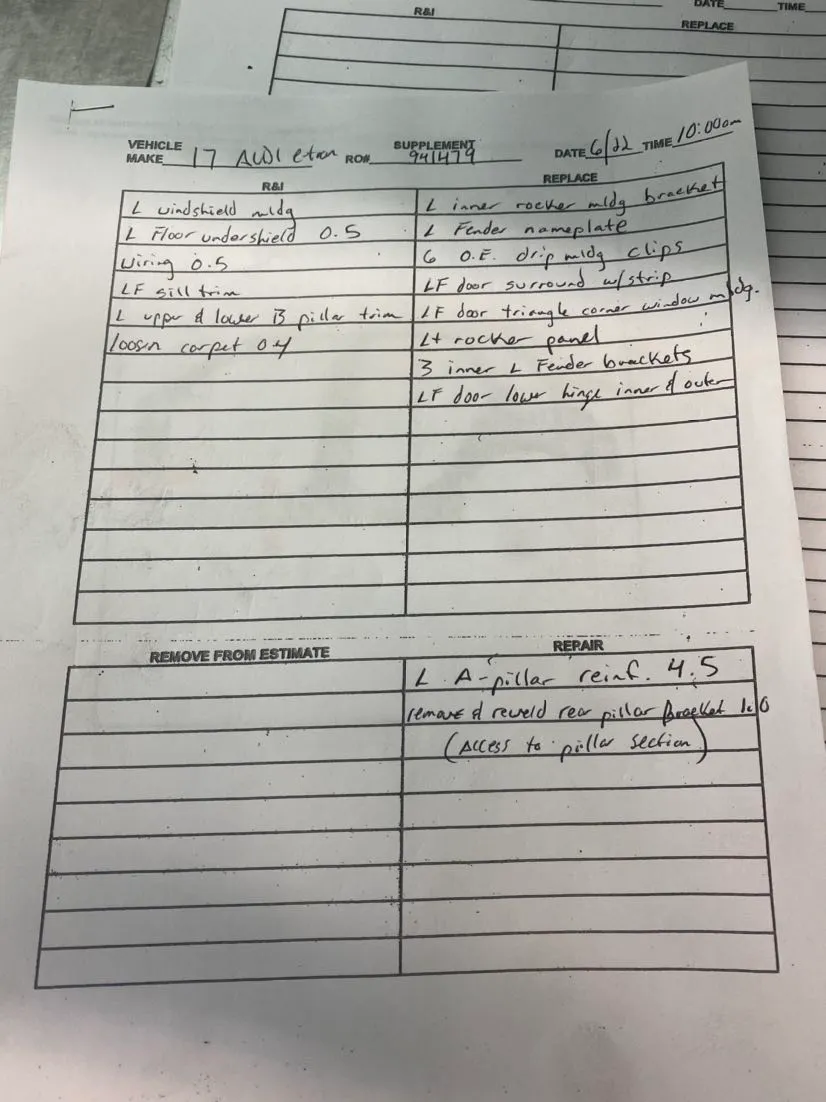 DATE TIME
R&I
REPLACE
SUPPLEMENT
VEHICLE MAKE 17 AUDI etron RO# 941479 DATE 6/22 TIME 10:00am
R&I
REPLACE
L windshield mldg
L Floor undershield 0.5
wiring 0.5
LF sill trim
L uppr & lower B pillar trim
loosen carpet 0.4
L inner rocker mldg bracket
L Fender nameplate
6 O.E. drip mldg clips
LF door surround w/strip
LF door triangle corner window mldg.
Lt rocker panel
3 inner L Fender brackets
LF door lower hinge inner & outer
REMOVE FROM ESTIMATE
REPAIR
L A-pillar reinf. 4.5
remove & reweld rear pillar Bracket 1.0
(Access to pillar section)